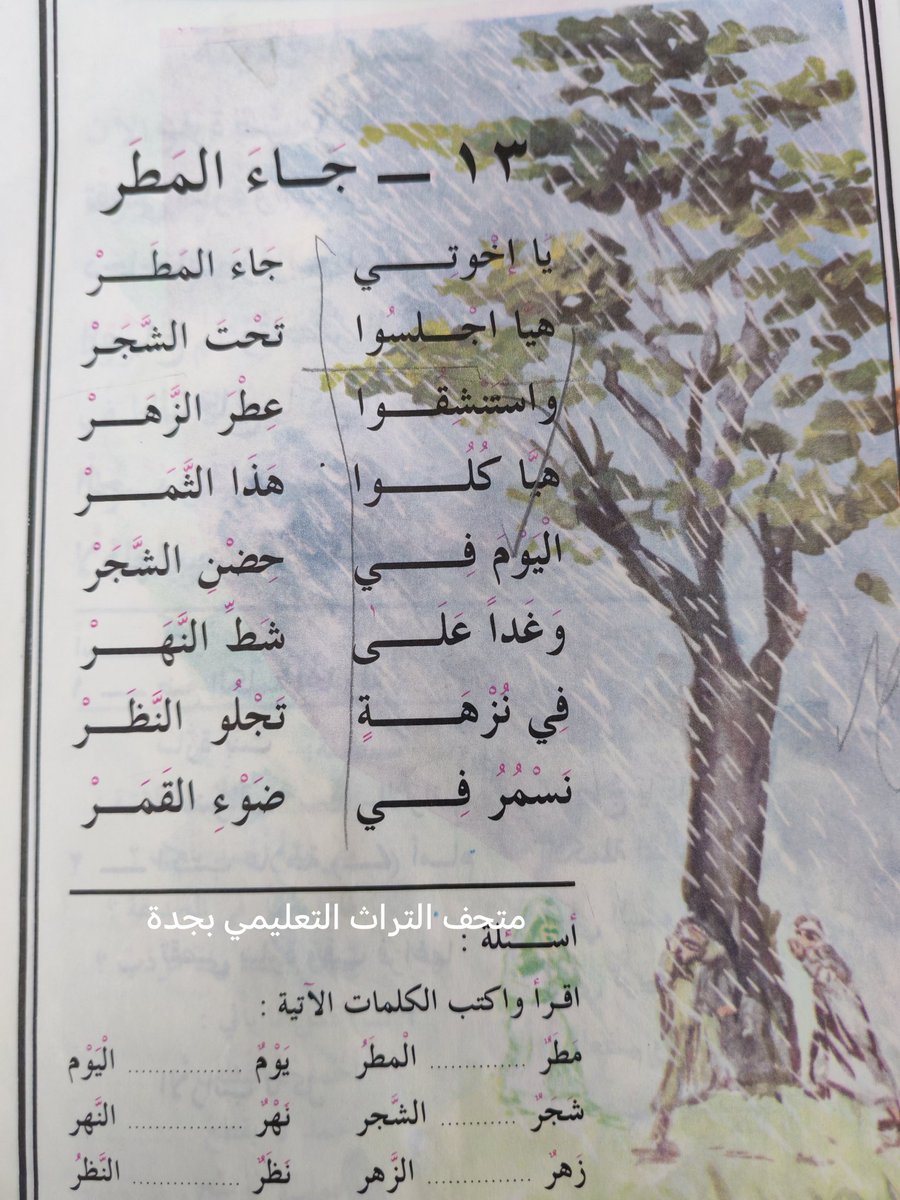 ١٣ ــ جَـاءَ المَطَر
يَا إِخْوتِــي جَاءَ المَطَــرْ
هيا اجْـلسُوا تَحْتَ الشَّجَـر
واستَنْشِقـوا عِطْرَ الزَّهَـرْ
هبَّا كُلُـــوا هَذَا الثَّمَـــرْ
الْيَوْمَ فِـــي حِضْنِ الشَّجَرْ
وَغَداً عَلَــى شَطِّ النَّهَــرْ
فِي نُزْهَـــةٍ تَجْلُو النَّظَــرْ
نَسْمُرُ فِـــي ضَوْءِ القَمَــرْ
متحف التراث التعليمي بجدة
أســئلة :
اقرأ واكتب الكلمات الآتية :
مَطَرٌ ............. الْمطَرُ يَوْمٌ ................ الْيَوْم
شَجَرٌ ........... الشَّجر نَهْرٌ ................ النَّهر
زَهرٌ ............. الزَّهر نَظَرٌ ................ النَّظرُ